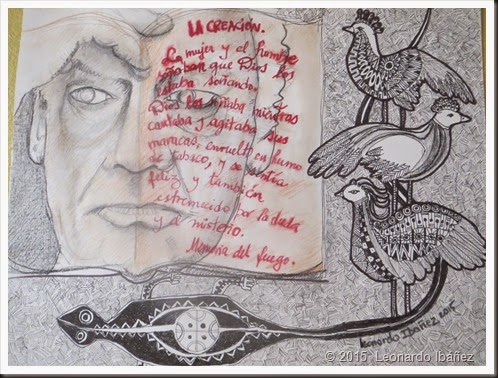 LA CREACIÓN.
La mujer y el hombre
soñaban que Dios los
estaba soñando.
Dios los soñaba mientras
cantaba y agitaba sus
maracas, envuelto en humo
de tabaco, y se sentía
feliz y también
estremecido por la duda
y el misterio.
Memoria del fuego.
Leonardo Ibáñez 2015
© 2015 Leonardo Ibáñez